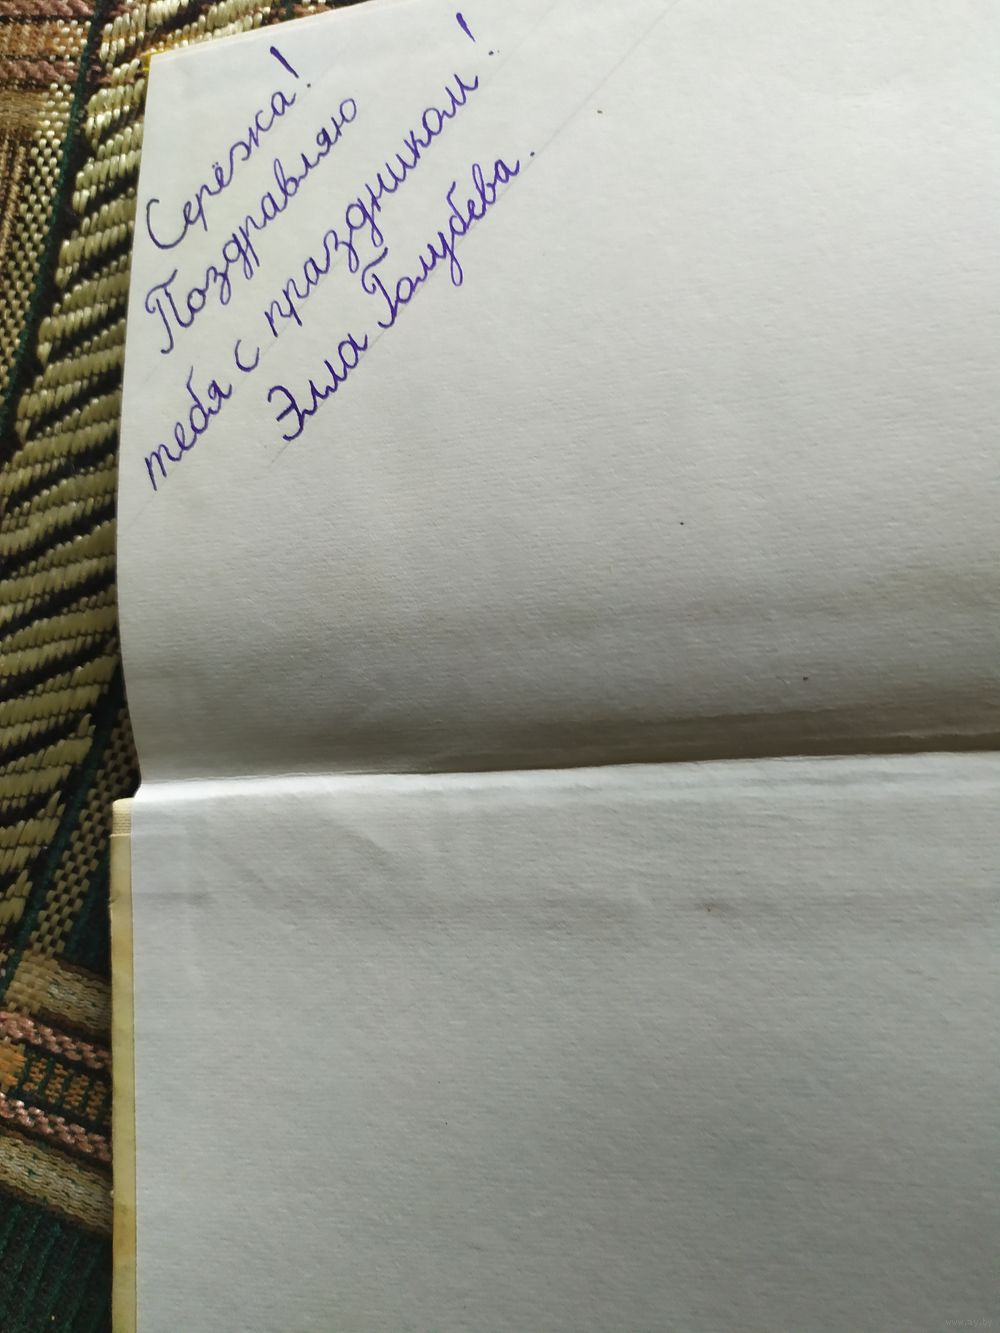 Серёжа!
Поздравляю
тебя с праздником!
Элла Голубева.
www.ay.by